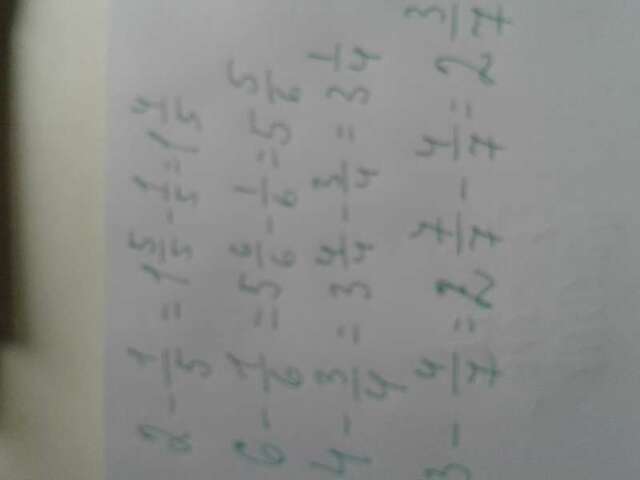 2 - 1/5 = 1 5/5 - 1/5 = 1 4/5
6 - 1/6 = 5 6/6 - 1/6 = 5 5/6
4 - 3/4 = 3 4/4 - 3/4 = 3 1/4
3 - 4/7 = 2 7/7 - 4/7 = 2 3/7